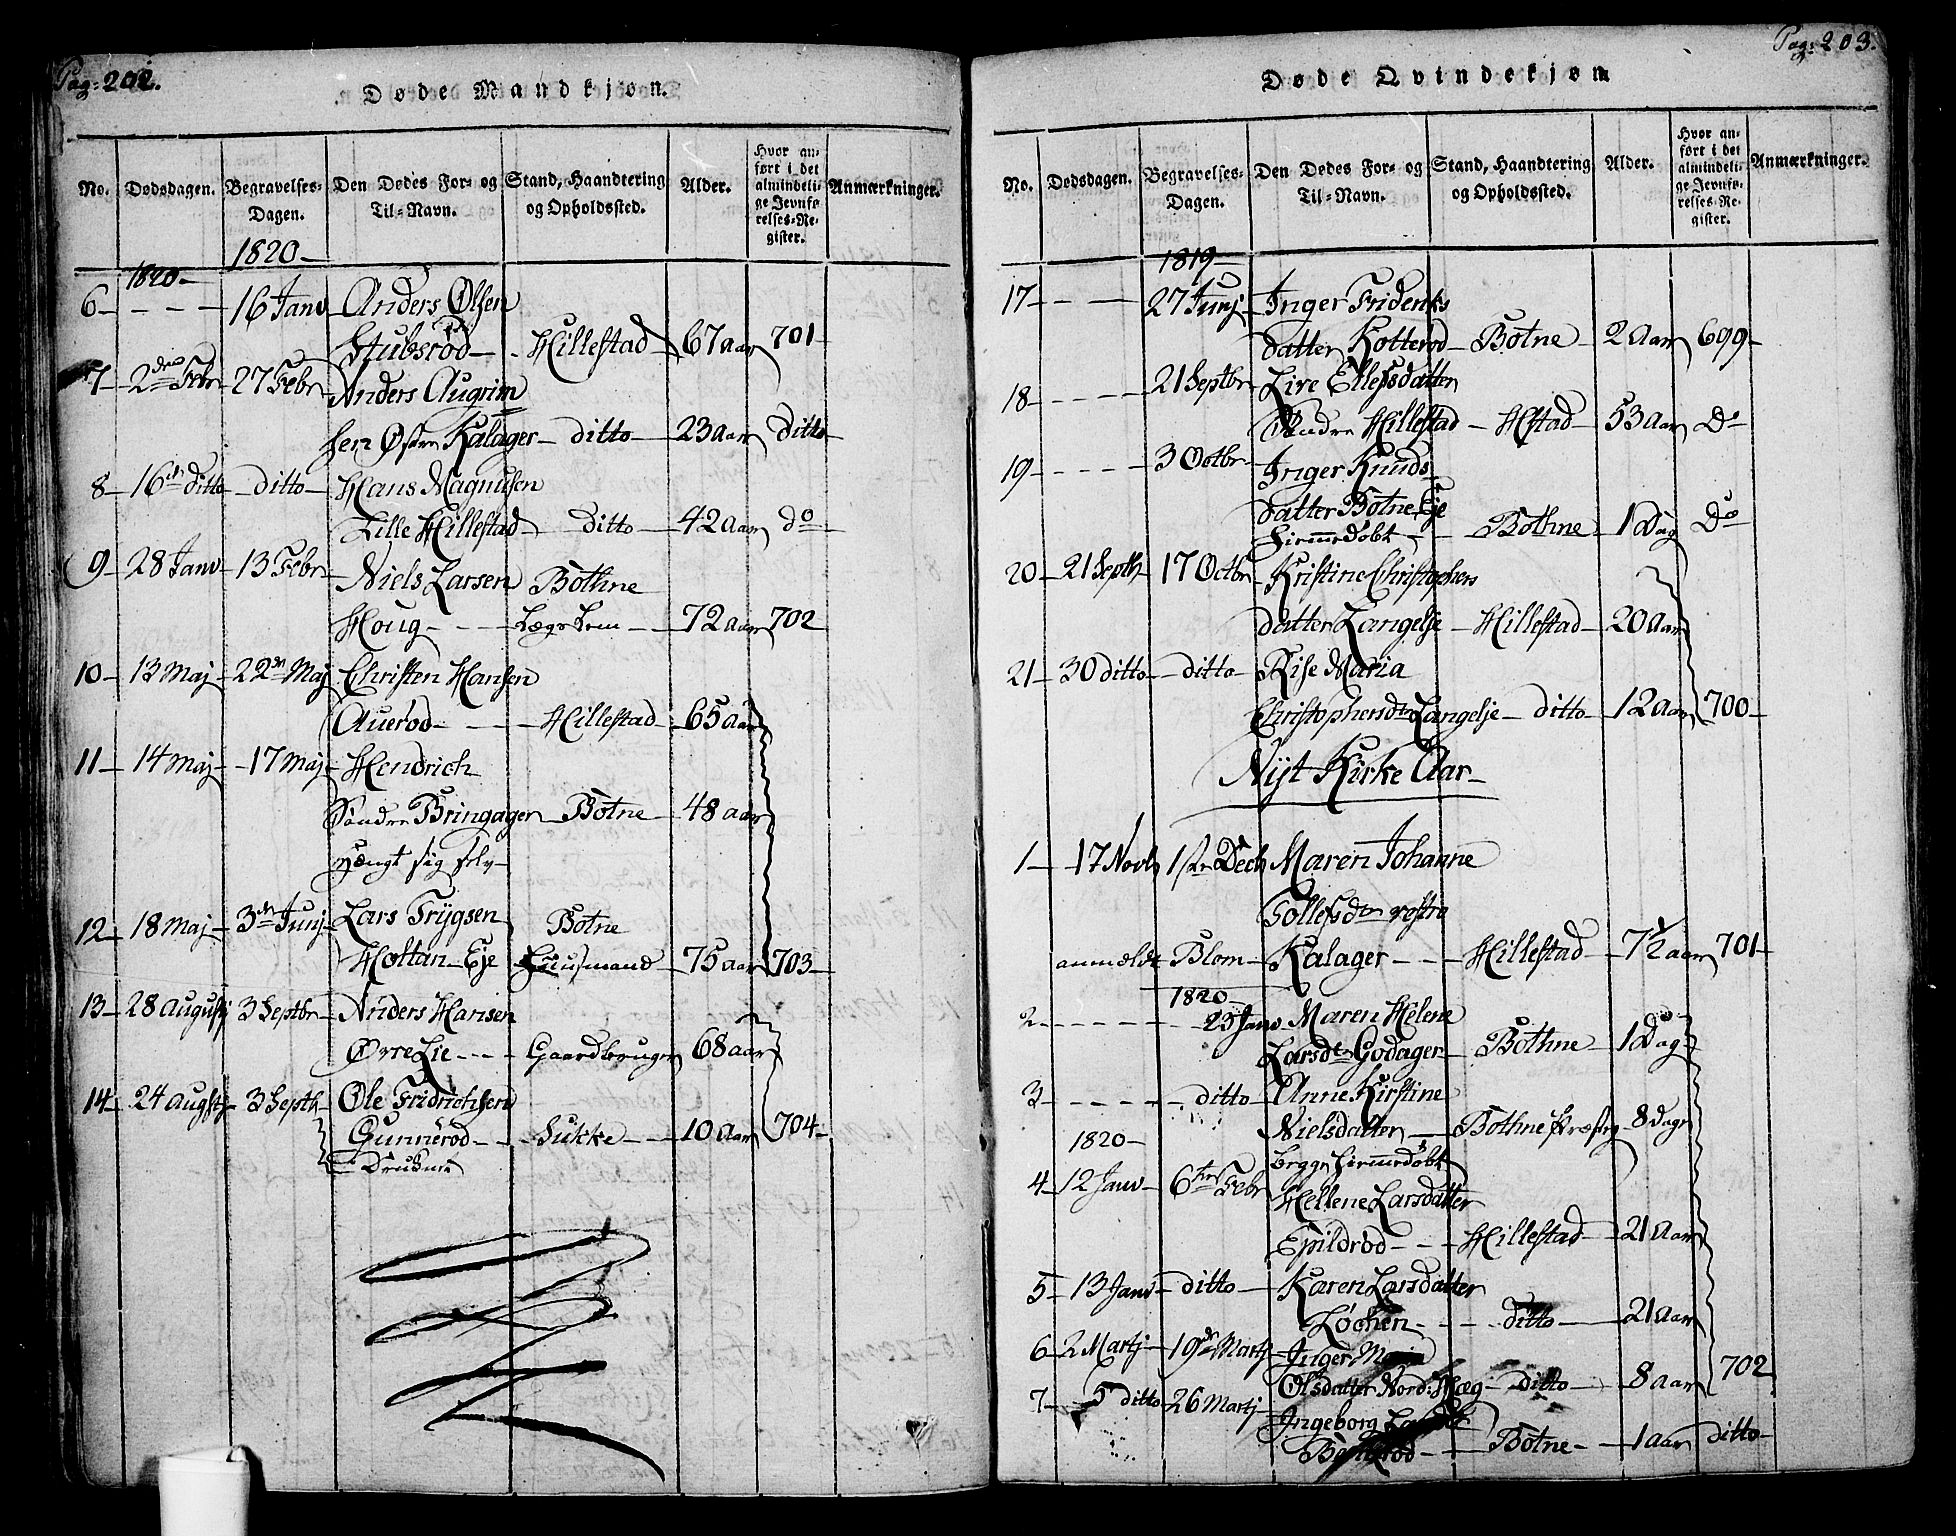 Pag: 202.
Døde Mandkjøn.
No. Dødsdagen. Begravelses-Dagen. Den Dødes For- og Til-Navn. Stand, Haandtering og Opholdssted. Alder. Hvor anført i det almindelige Jevnførelses-Register. Anmærkninger.
1820 1820
6 - - - 16 Janv Anders Olsen
Stubsrød Hillestad 67 aar 701
7 2den Febr 27 Febr Anders Augrim
sen Østre Kalager ditto 23 aar ditto
8 16de ditto ditto Hans Magnusen
Lille Hillestad ditto 42 aar do
9 28 Janv 13 Febr Niels Larsen Bothne
Houg Lægs Lem 72 aar 702
10 13 Maj 22de Maj Christen Hansen
Auerød Hillestad 65 aar
11 14 Maj 17 Maj Hendrich
Søndre Bringager Botne 48 aar
hængt sig selv
12 18 Maj 3de Junj Lars Trygsen Botne
Holtan Eje Huusmand 75 aar 703
13 28 Augustj 3 Septbr Anders Hansen
Ørre Lie Gaardbruger 68 aar
14 24 Augstj 3 Septb Ole Fridrichsen
Gunnerød Sukke 10 aar 704
Druknet
Pag: 203.
Døde Qvindekjøn
No. Dødsdagen. Begravelses-Dagen. Den Dødes For- og Til-Navn. Stand, Haandtering og Opholdssted. Alder. Hvor anført i det almindelige Jevnførelses-Register. Anmærkninger.
1819
17 - - 27 Junj Inger Fridenks
datter Kotterød Botne 2 Aar 699
18 - - - - 21 Septbr Live Ellefsdatter
Søndre Hillestad Hstad 53 aar Do
19 - - - - 3 Octbr Inger Knuds
datter Botne Eje
hiemmedøbt Bothne 1 Dag Do
20 21 Septb 17 Octbr Kristine Christophers
datter Langelje Hillestad 20 aar
21 30 ditto ditto Lise Maria
Christophersdtr Langelje ditto 12 aar 700
Nyt Kirke Aar
1 17 Novb 1ste Decb Maren Johanne
Tollefsdtr vestre
anmeldt Blom Kalager Hillestad 7 1/2 aar 701
1820
2 - - - - - 23 Janv Maren Helene
Larsdtr Godager Bothne 1 Dag
3 - - - - - ditto Anne Kirstine
1820 Nielsdatter Bothne Præstg 8 Dage
begge hiemmedøbt
4 12 Janv 6te Febr Hellene Larsdatter
Epildrød Hillestad 21 Aar
5 13 Janv ditto Karen Larsdatter
Løchen ditto 21 aar
6 2 Martj 19de Martj Inger Maria
Olsdatter Nord: Hæg ditto 8 aar 702
7 5 ditto 26 Martj Ingeborg
Botne 1 aar ditto